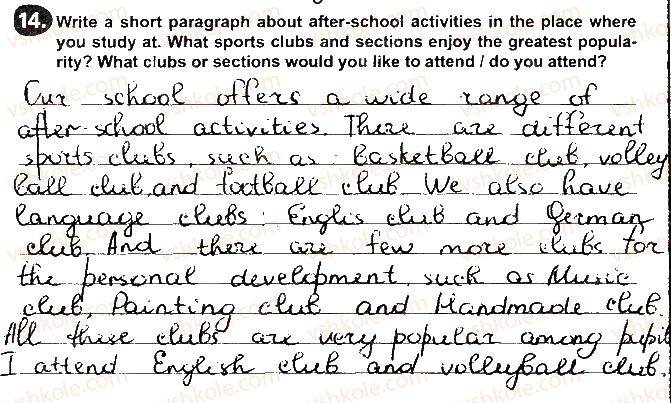 14. Write a short paragraph about after-school activities in the place where
you study at. What sports clubs and sections enjoy the greatest popula-
rity? What clubs or sections would you like to attend / do you attend?
Our school offers a wide range of
after-school activities. There are different
sports clubs, such as: Basketball club, volley
ball club, and football club. We also have
language clubs: Englis club and German
club. And there are few more clubs for
the personal development, such as Music
club, Painting club and Handmade club.
All these clubs are very popular among pupil
I attend English club and volleyball club.